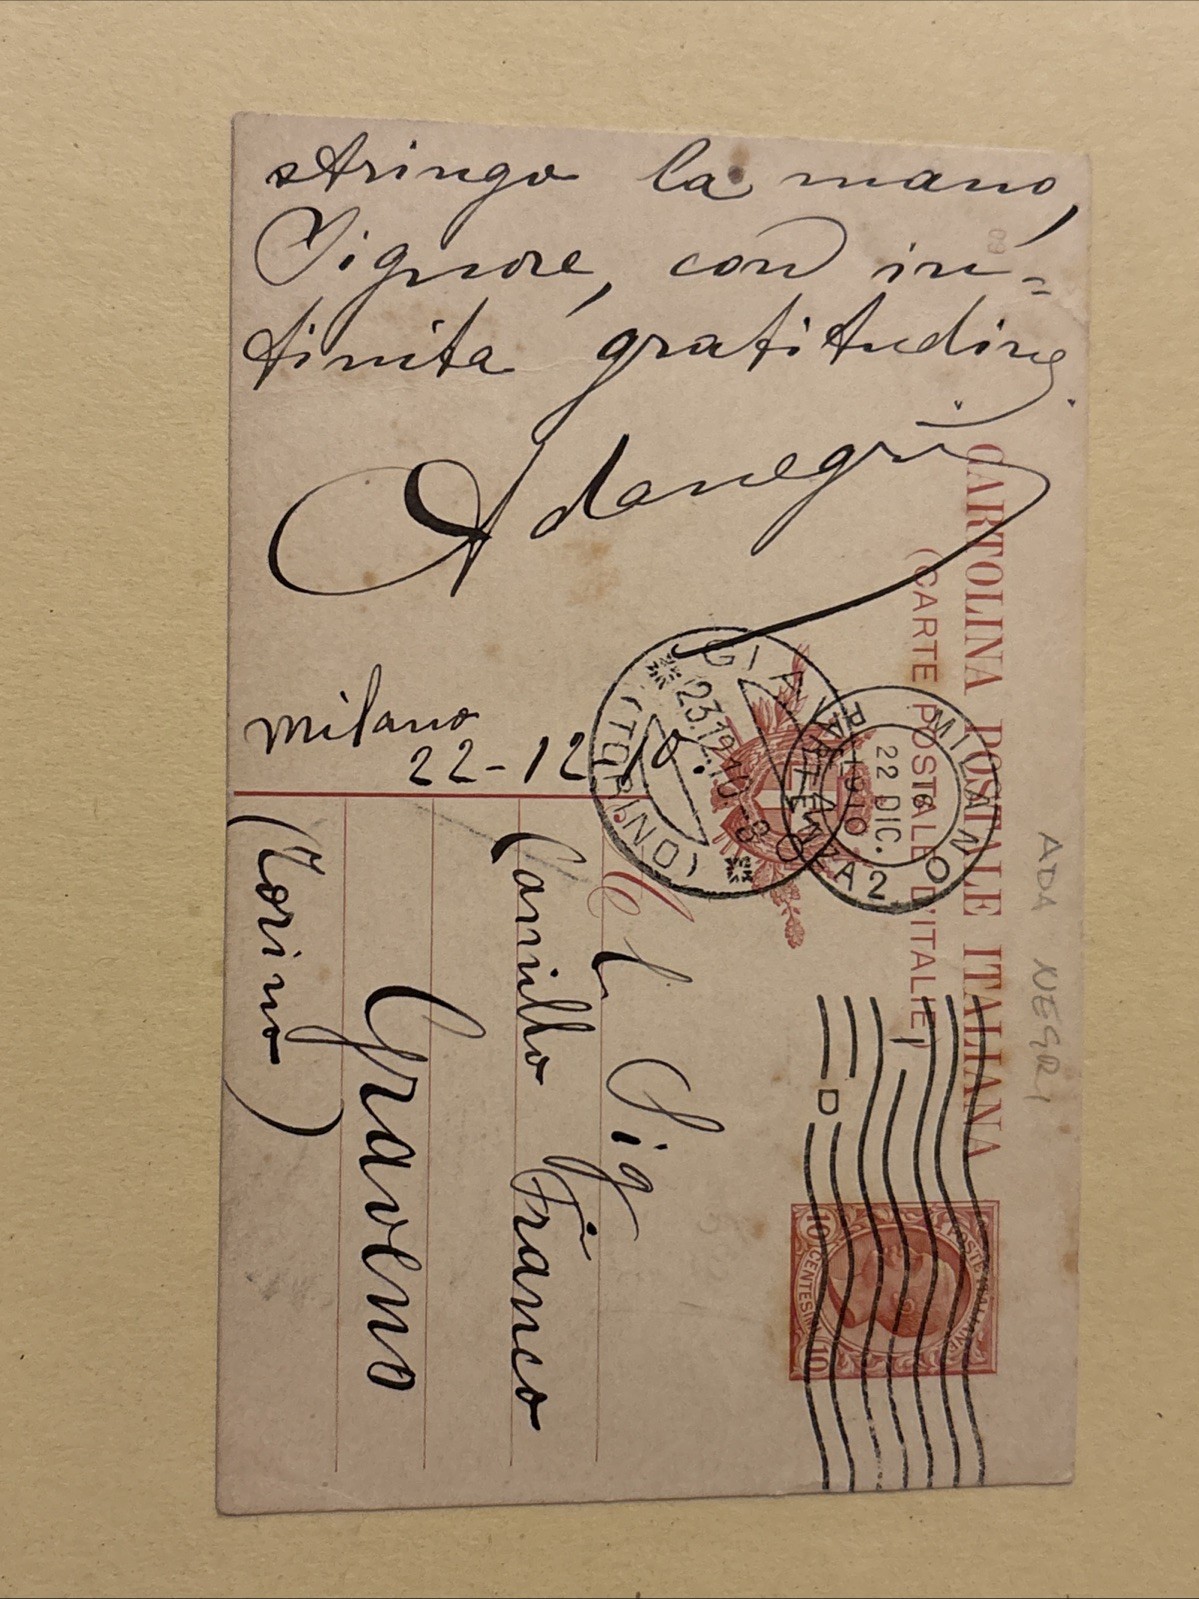 stringo la mano,
Signore, con in-
finita gratitudine.
Adanegri
Milano
22-12-10.
CARTOLINA POSTALE ITALIANA
(CARTE POSTALE D'ITALIE)
ADA NEGRI
MILANO
PARTENZA 2
16
22 DIC.
1910
GIAVENO
23.12.10.-8
(TORINO)
D
POSTE ITALIANE
10 CENTESIMI 10
Al Sig
Camillo Franco
Giaveno
(Torino)